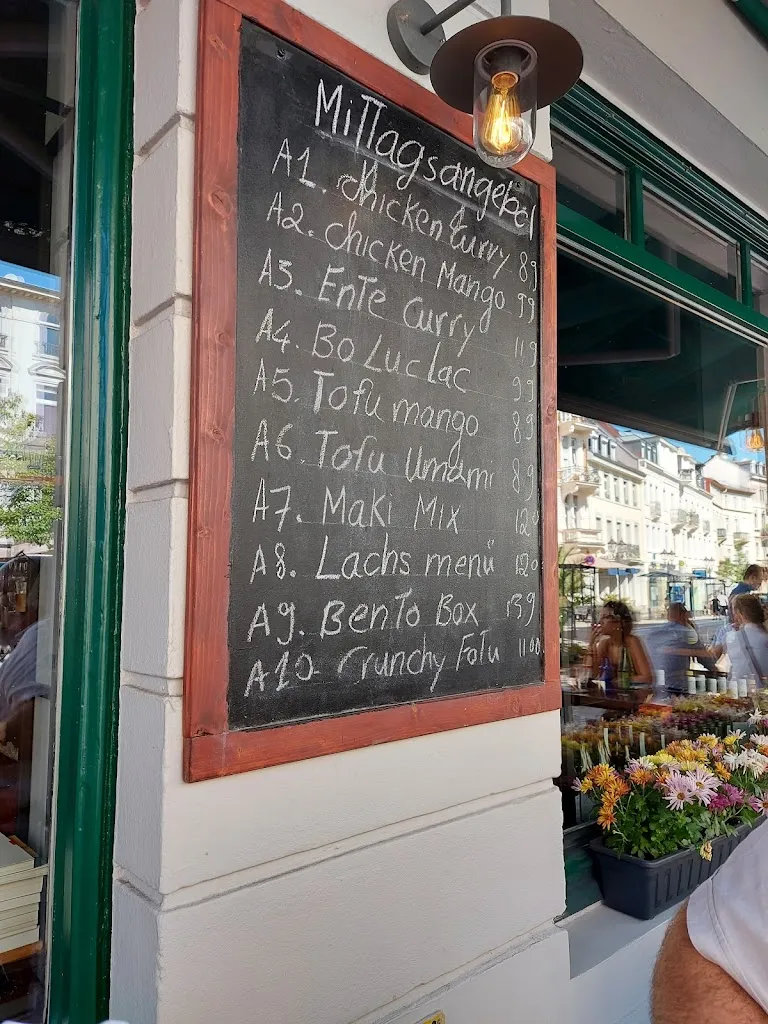 Mittagsangebot
A1. chicken Curry 89
A2. chicken Mango 99
A3. Ente Curry 119
A4. Bo Luc Lac 99
A5. Tofu mango 89
A6. Tofu Umami 89
A7. Maki Mix 120
A8. Lachs menü 120
A9. Bento Box 139
A10 Crunchy FoTu 1100